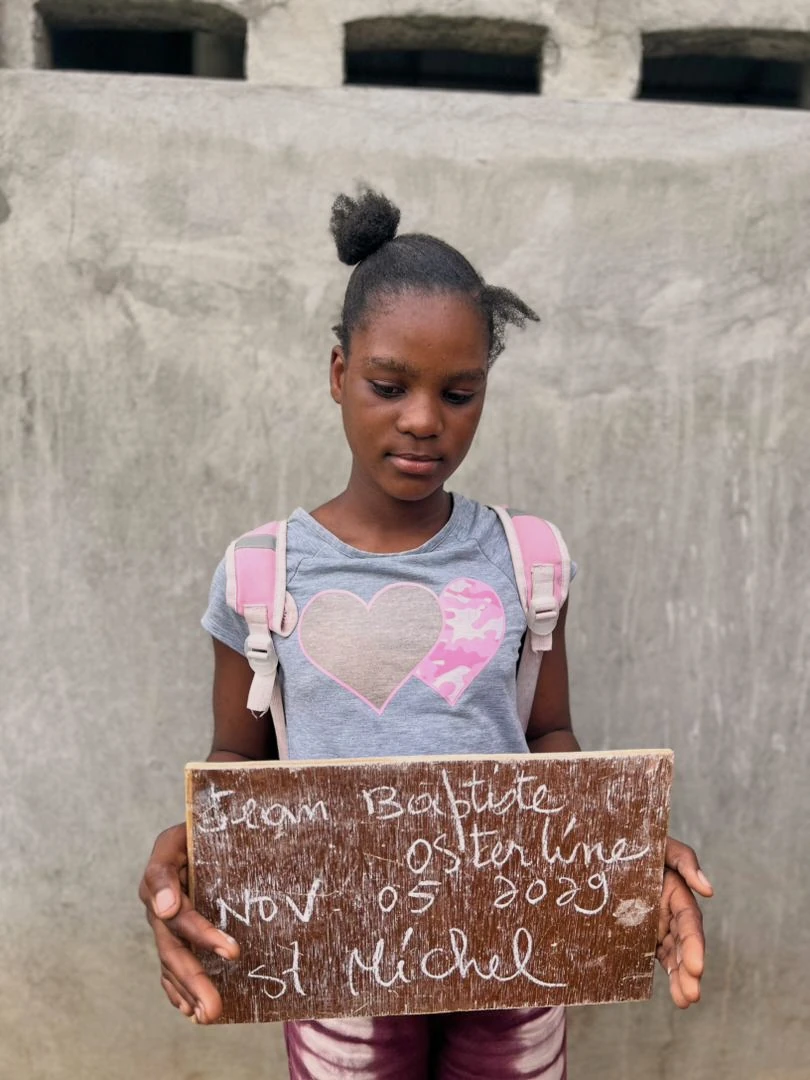 Jean Baptiste
Osterline
NOV 05 2029
st Michel